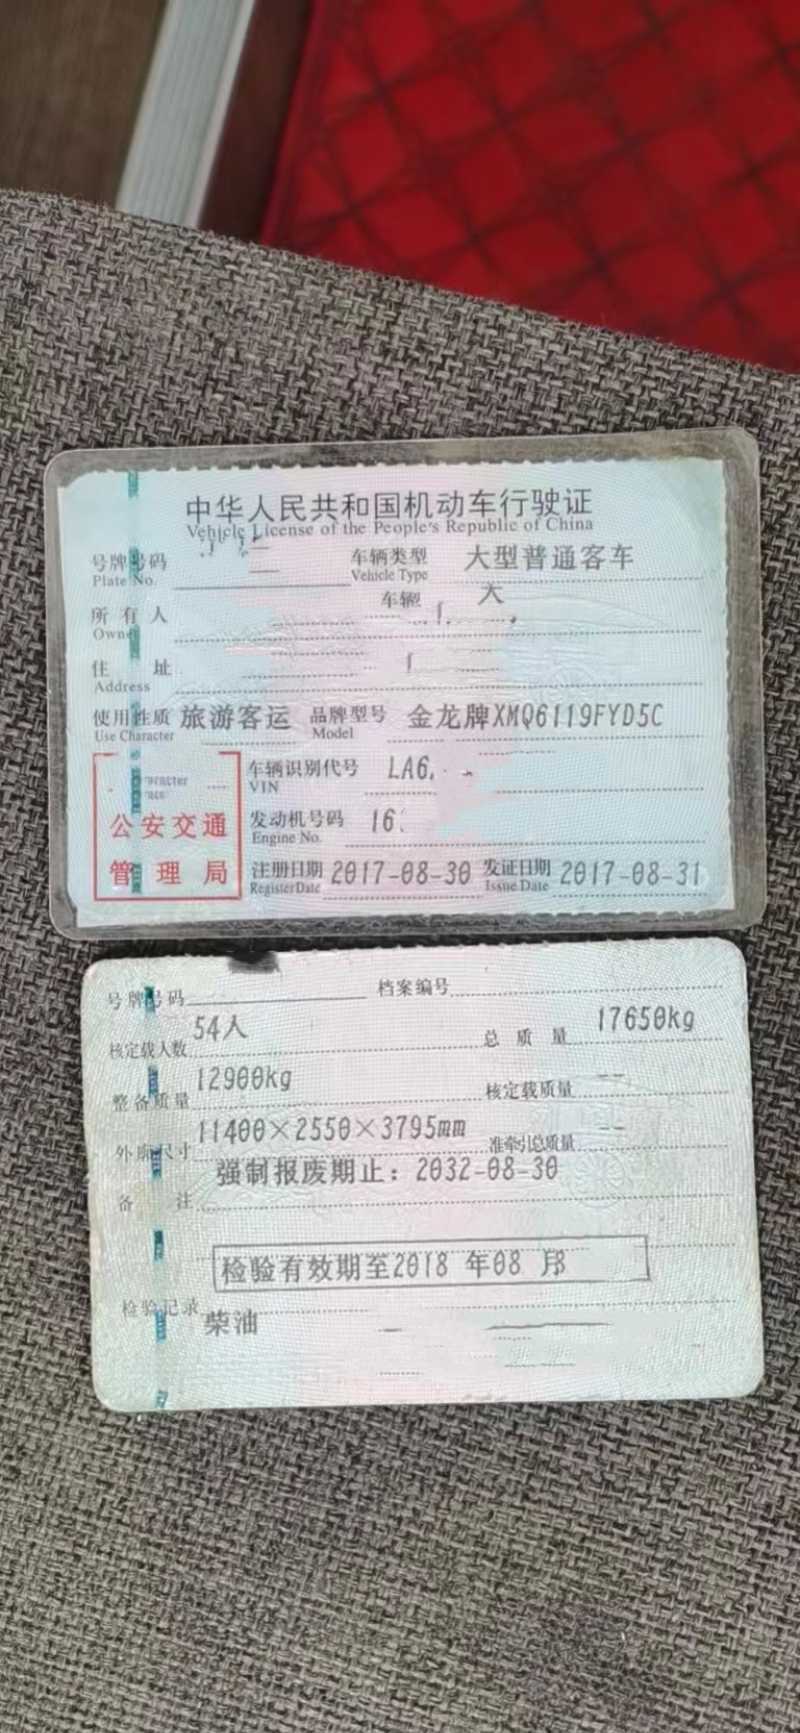 中华人民共和国机动车行驶证
Vehicle License of the People's Republic of China
号牌号码 车辆类型 大型普通客车
Plate No. Vehicle Type
所有人 车辆 大
Owner
住址
Address
使用性质 旅游客运 品牌型号 金龙牌XMQ6119FYD5C
Use Character Model
车辆识别代号 LA6
VIN
公安交通
管理局
发动机号码 16
Engine No.
注册日期 2017-08-30 发证日期 2017-08-31
Register Date Issue Date
号牌号码 档案编号
核定载人数 54人 总质量 17650kg
整备质量 12900kg 核定载质量 --
外廓尺寸 11400×2550×3795mm 准牵引总质量 --
备注 强制报废期止：2032-08-30
检验有效期至2018年08月
检验记录
柴油